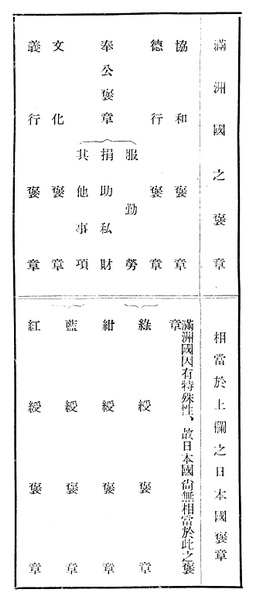 滿洲國之褒章
相當於上欄之日本國褒章
協和褒章
滿洲國因有特殊性、故日本國尙無相當於此之褒章
德行褒章
綠綬褒章
奉公褒章
服勤勞
捐助私財
其他事項
紺綬褒章
藍綬褒章
文化褒章
義行褒章
紅綬褒章